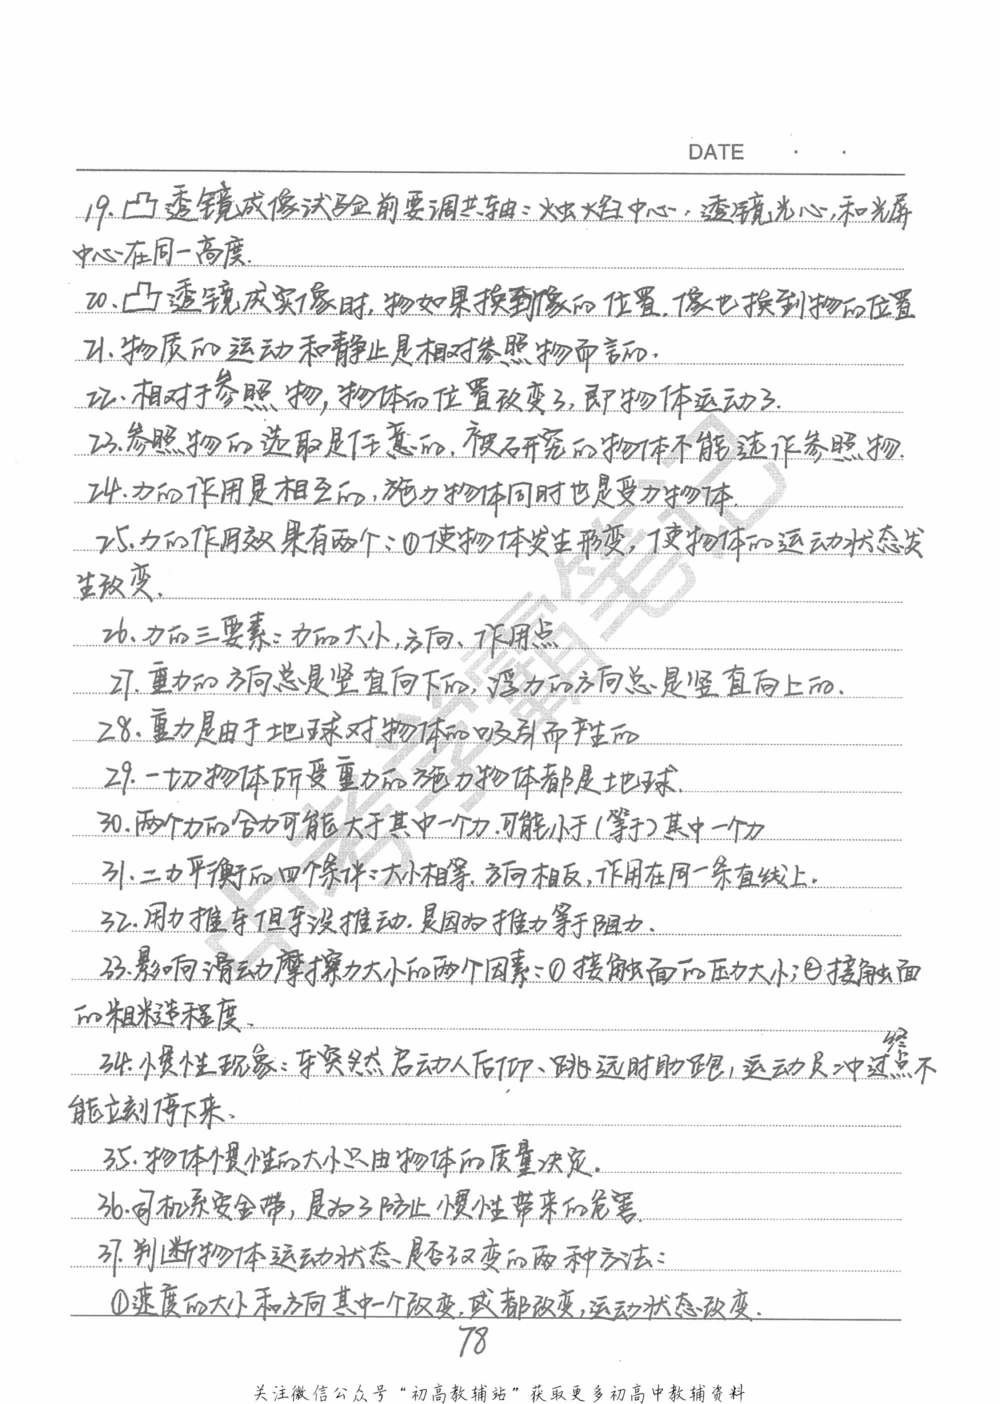 DATE · ·
19.凸透镜成像试验前要调共轴：烛焰中心，透镜光心，和光屏
中心在同一高度.
20.凸透镜成实像时，物如果换到像的位置，像也换到物的位置
21.物质的运动和静止是相对参照物而言的.
22.相对于参照物，物体的位置改变了，即物体运动了.
23.参照物的选取是任意的，被研究的物体不能选作参照物.
24.力的作用是相互的，施力物体同时也是受力物体.
25.力的作用效果有两个：①使物体发生形变，使物体的运动状态发
生改变.
26.力的三要素：力的大小、方向、作用点
27.重力的方向总是竖直向下的，浮力的方向总是竖直向上的.
28.重力是由于地球对物体的吸引而产生的
29.一切物体所受重力的施力物体都是地球.
30.两个力的合力可能大于其中一个力.可能小于(等于)其中一个力
31.二力平衡的四个条件：大小相等、方向相反，作用在同一条直线上.
32.用力推车但车没推动.是因为推力等于阻力.
33.影响滑动摩擦力大小的两个因素：①接触面的压力大小；②接触面
的粗糙程度.
34.惯性现象：车突然启动人后仰、跳远时助跑，运动员冲过终点不
能立刻停下来.
35.物体惯性的大小只由物体的质量决定.
36.司机系安全带，是为了防止惯性带来的危害
37.判断物体运动状态是否改变的两种方法：
①速度的大小和方向其中一个改变，或都改变，运动状态改变.
78
关注微信公众号“初高教辅站”获取更多初高中教辅资料
中考学霸笔记